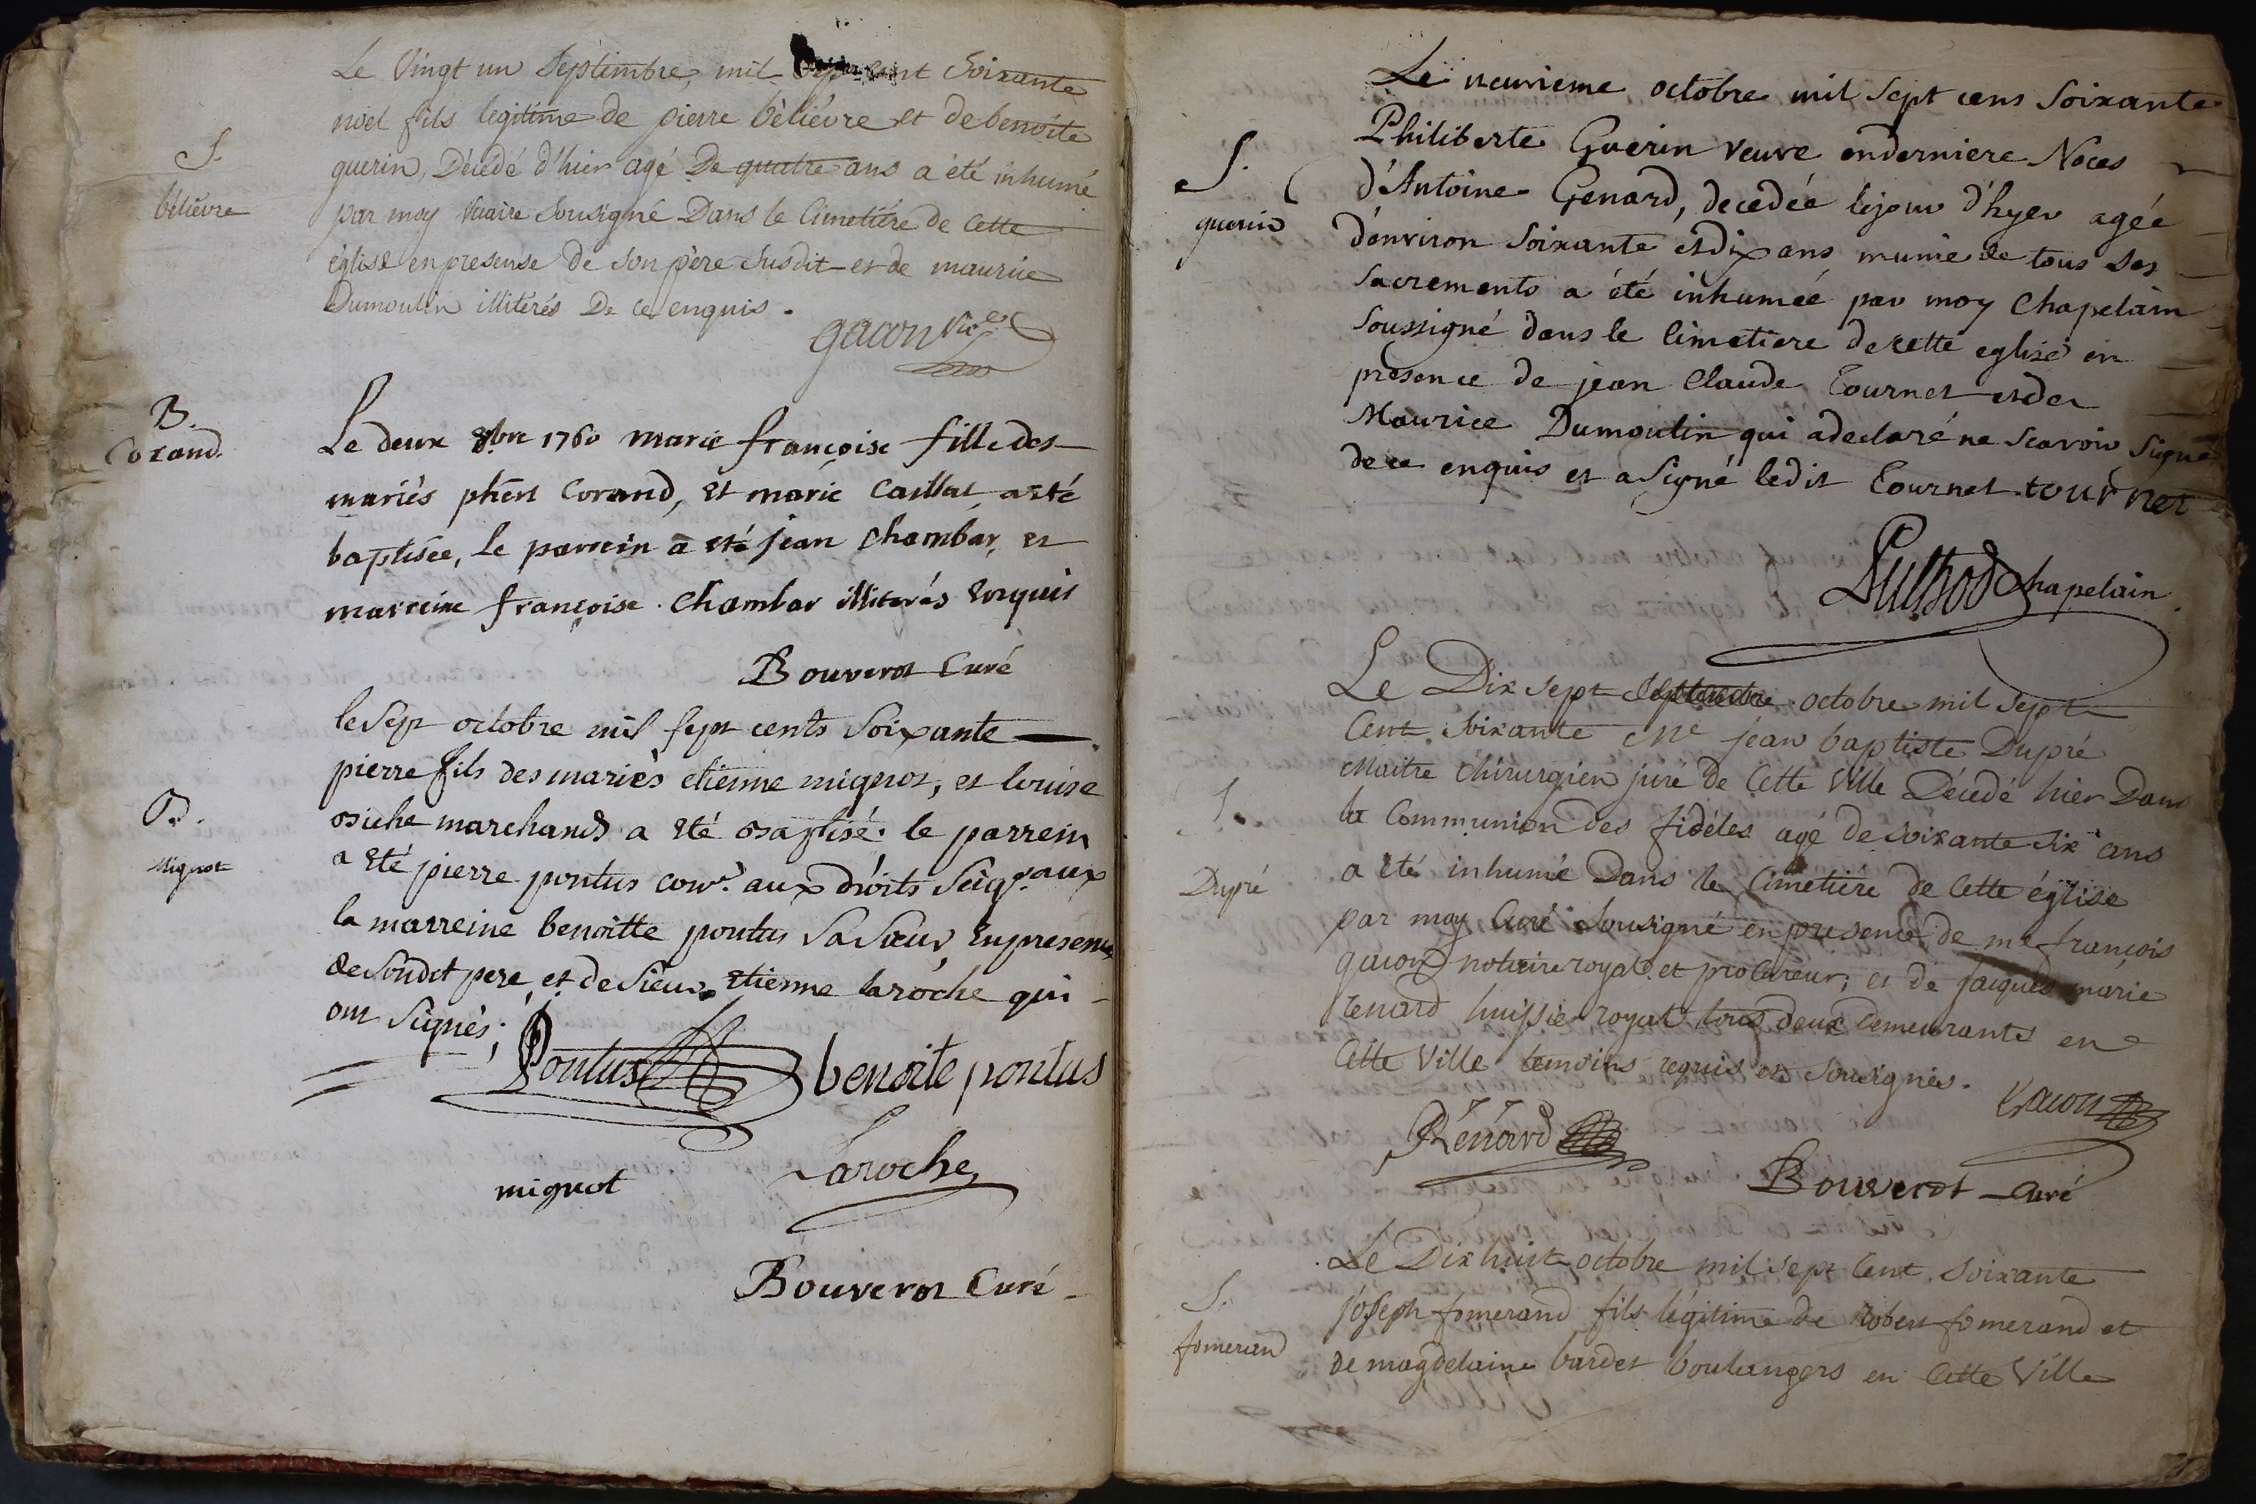 Le Vingt un Septembre, mil Sept cent Soixante
noel fils legitime de pierre béliévre et de benoite
guerin, Décédé d'hier agé De quatre ans a été inhumé
S.
béliévre
par moy vicaire Sousigné Dans le Cimetiére de Cette
église en presense de Son père Susdit et de maurice
Dumoulin illiterés De ce enquis.
gacon vic.e
B.
Corand.
Le deux 8bre 1760 marie françoise fille des
mariés phért Corand, et marie Caillat a eté
baptisée, Le parrein a eté jean Chambar, et
marreine françoise Chambar illiterés Enquis
Bouverot Curé
le Sept octobre mil sept cents Soixante
pierre fils des mariés etienne mignot, et louise
B.
Mignot
marchands a eté baptisé. le parrein
a eté pierre pontus conr. aux droits Seigr.aux
la marreine benoitte pontus Sa Sœur, En presence
de Soudit pere, et de Sieur Etienne laroche qui
ont Signés;
Pontus benoite pontus
mignot Laroche
Bouverot Curé
Le neuvieme octobre mil Sept cens Soixante
S.
guerin
Philiberte Guerin veuve en derniere Noces
d'Antoine Genard, decedée le jour d'hyer agée
d'environ Soixante et dix ans munie de tous Ses
Sacrements a été inhumée par moy Chapelain
Soussigné dans le Cimetiere de cette eglise en
présence de jean Claude Tournet et de
Maurice Dumoulin qui a declaré ne Scavoir Signé
de ce enquis et a Signé ledit Tournet. tournet
Chapelain.
Le Dix Sept Septembre octobre mil Sept
Cent. Soixante Me jean baptiste Dupré
Maitre Chirurgien juré de Cette Ville Décédé hier Dans
S.
Dupré
la Communion des fidéles agé de Soixante Six ans
a été inhumé Dans le Cimetiére de Cette église
par moy Curé Sousigné en presence de me françois
gacon notaire royal et procureur, et de jacques marie
renard huissier royal tous deux demeurants en
Cette Ville temoins requis et Sousignés.
Gacon
Rénard
Bouverot Curé
Le Dix huit octobre mil Sept Cent Soixante
S.
fomerand
joseph fomerand fils légitime de robert fomerand et
de magdelaine bardet boulangers en Cette Ville